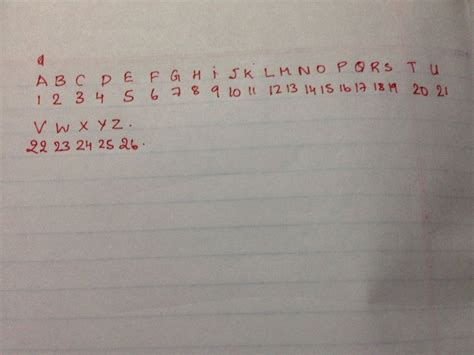 A B C D E F G H i J K L M N O P Q R S T U
1 2 3 4 5 6 7 8 9 10 11 12 13 14 15 16 17 18 19 20 21
V W X Y Z.
22 23 24 25 26.